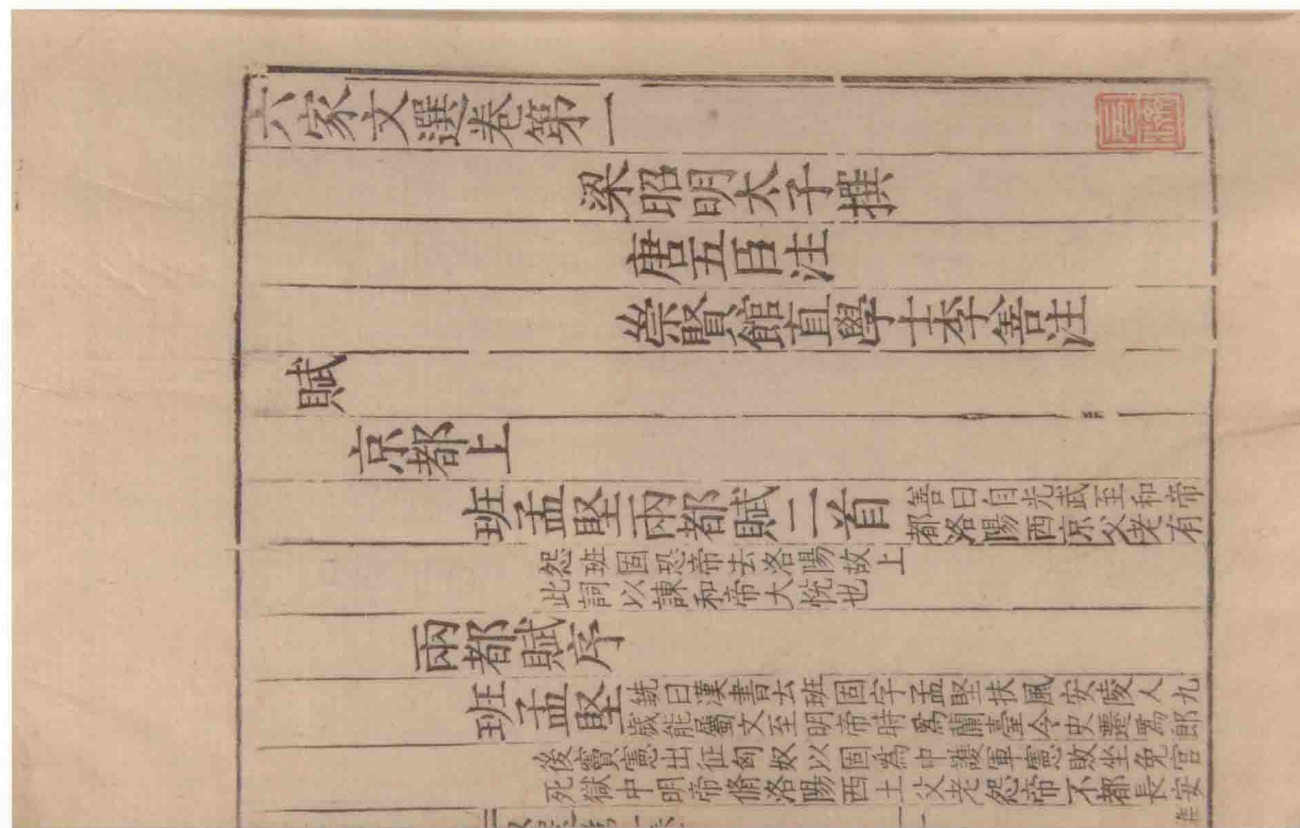 六家文選卷第一
梁昭明太子撰
唐五臣注
崇賢館直學士李善注
賦
京都上
班孟堅兩都賦二首
善曰自光武至和帝
都洛陽西京父老有
怨班固恐帝去洛陽故上
此詞以諫和帝大悅也
兩都賦序
班孟堅
銑曰漢書云班固字孟堅扶風安陵人九
歲能屬文至明帝時爲蘭臺令史遷爲郎
後竇憲出征匈奴以固為中護軍憲敗坐免官
死獄中明帝脩洛陽西土父老怨帝不都長安